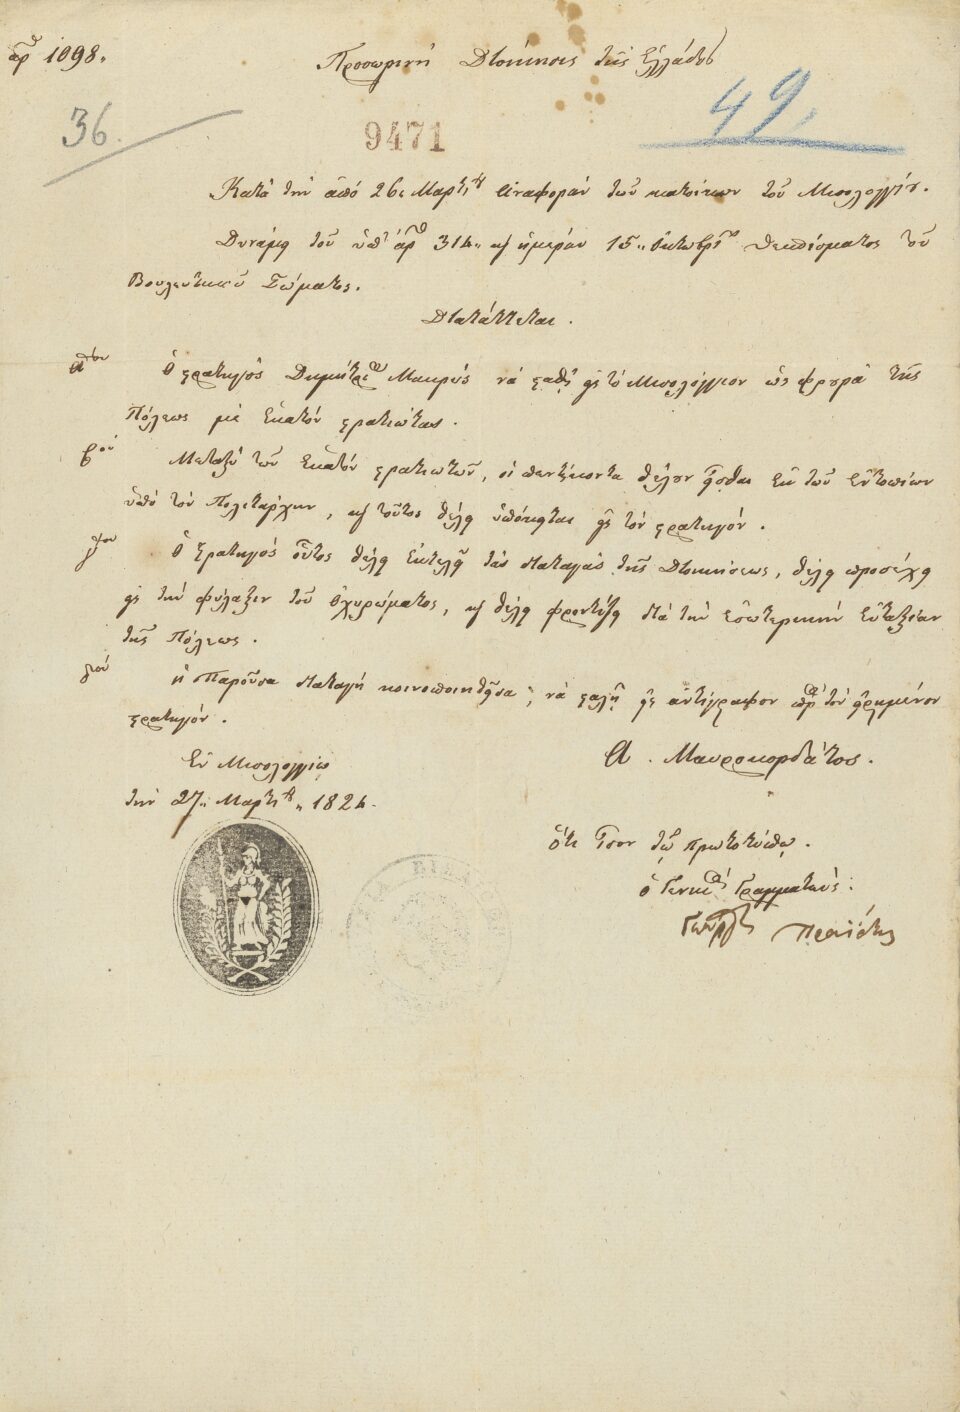 ἀρ. 1098.
Προσωρινὴ Διοίκησις τῆς Ἑλλάδος
36.
49.
9471
Κατὰ τὴν ἀπὸ 26 Μαρτίου ἀναφορὰν τῶν κατοίκων τοῦ Μισολογγίου.
Δυνάμει τοῦ ὑπ' ἀρ. 314 καὶ ἡμέραν 15 Ὀκτωβρίου θεσπίσματος τοῦ
Βουλευτικοῦ Σώματος.
Διατάττεται.
αον Ὁ στρατηγὸς Δημήτριος Μακρὺς νὰ σταθῇ εἰς τὸ Μισολόγγιον ὡς φρουρὰ τῆς
Πόλεως μὲ ἑκατὸν στρατιώτας.
βον Μεταξὺ τῶν ἑκατὸν στρατιωτῶν, οἱ πεντήκοντα θέλουν εἶσθαι ἐκ τῶν ἐντοπίων
ὑπὸ τὸν Πολιτάρχην, καὶ τοῦτος θέλει ὑπόκειται εἰς τὸν στρατηγόν.
γον Ὁ στρατηγὸς οὗτος θέλει ἐκτελεῖ τὰς διαταγὰς τῆς Διοικήσεως, θέλει προσέχει
εἰς τὴν φύλαξιν τοῦ ὀχυρώματος, καὶ θέλει φροντίζει διὰ τὴν ἐσωτερικὴν εὐταξίαν
τῆς Πόλεως.
δον Ἡ παροῦσα διαταγὴ κοινοποιηθεῖσα, νὰ σταλῇ εἰς ἀντίγραφον πρὸς τὸν εἰρημένον
στρατηγόν.
Α. Μαυροκορδάτος.
Ἐν Μισολογγίῳ
τὴν 27 Μαρτίου 1824.
Ὅτι ἴσον τῷ πρωτοτύπῳ.
ὁ Γενικὸς Γραμματεύς.
Γεώργιος Πραΐδης